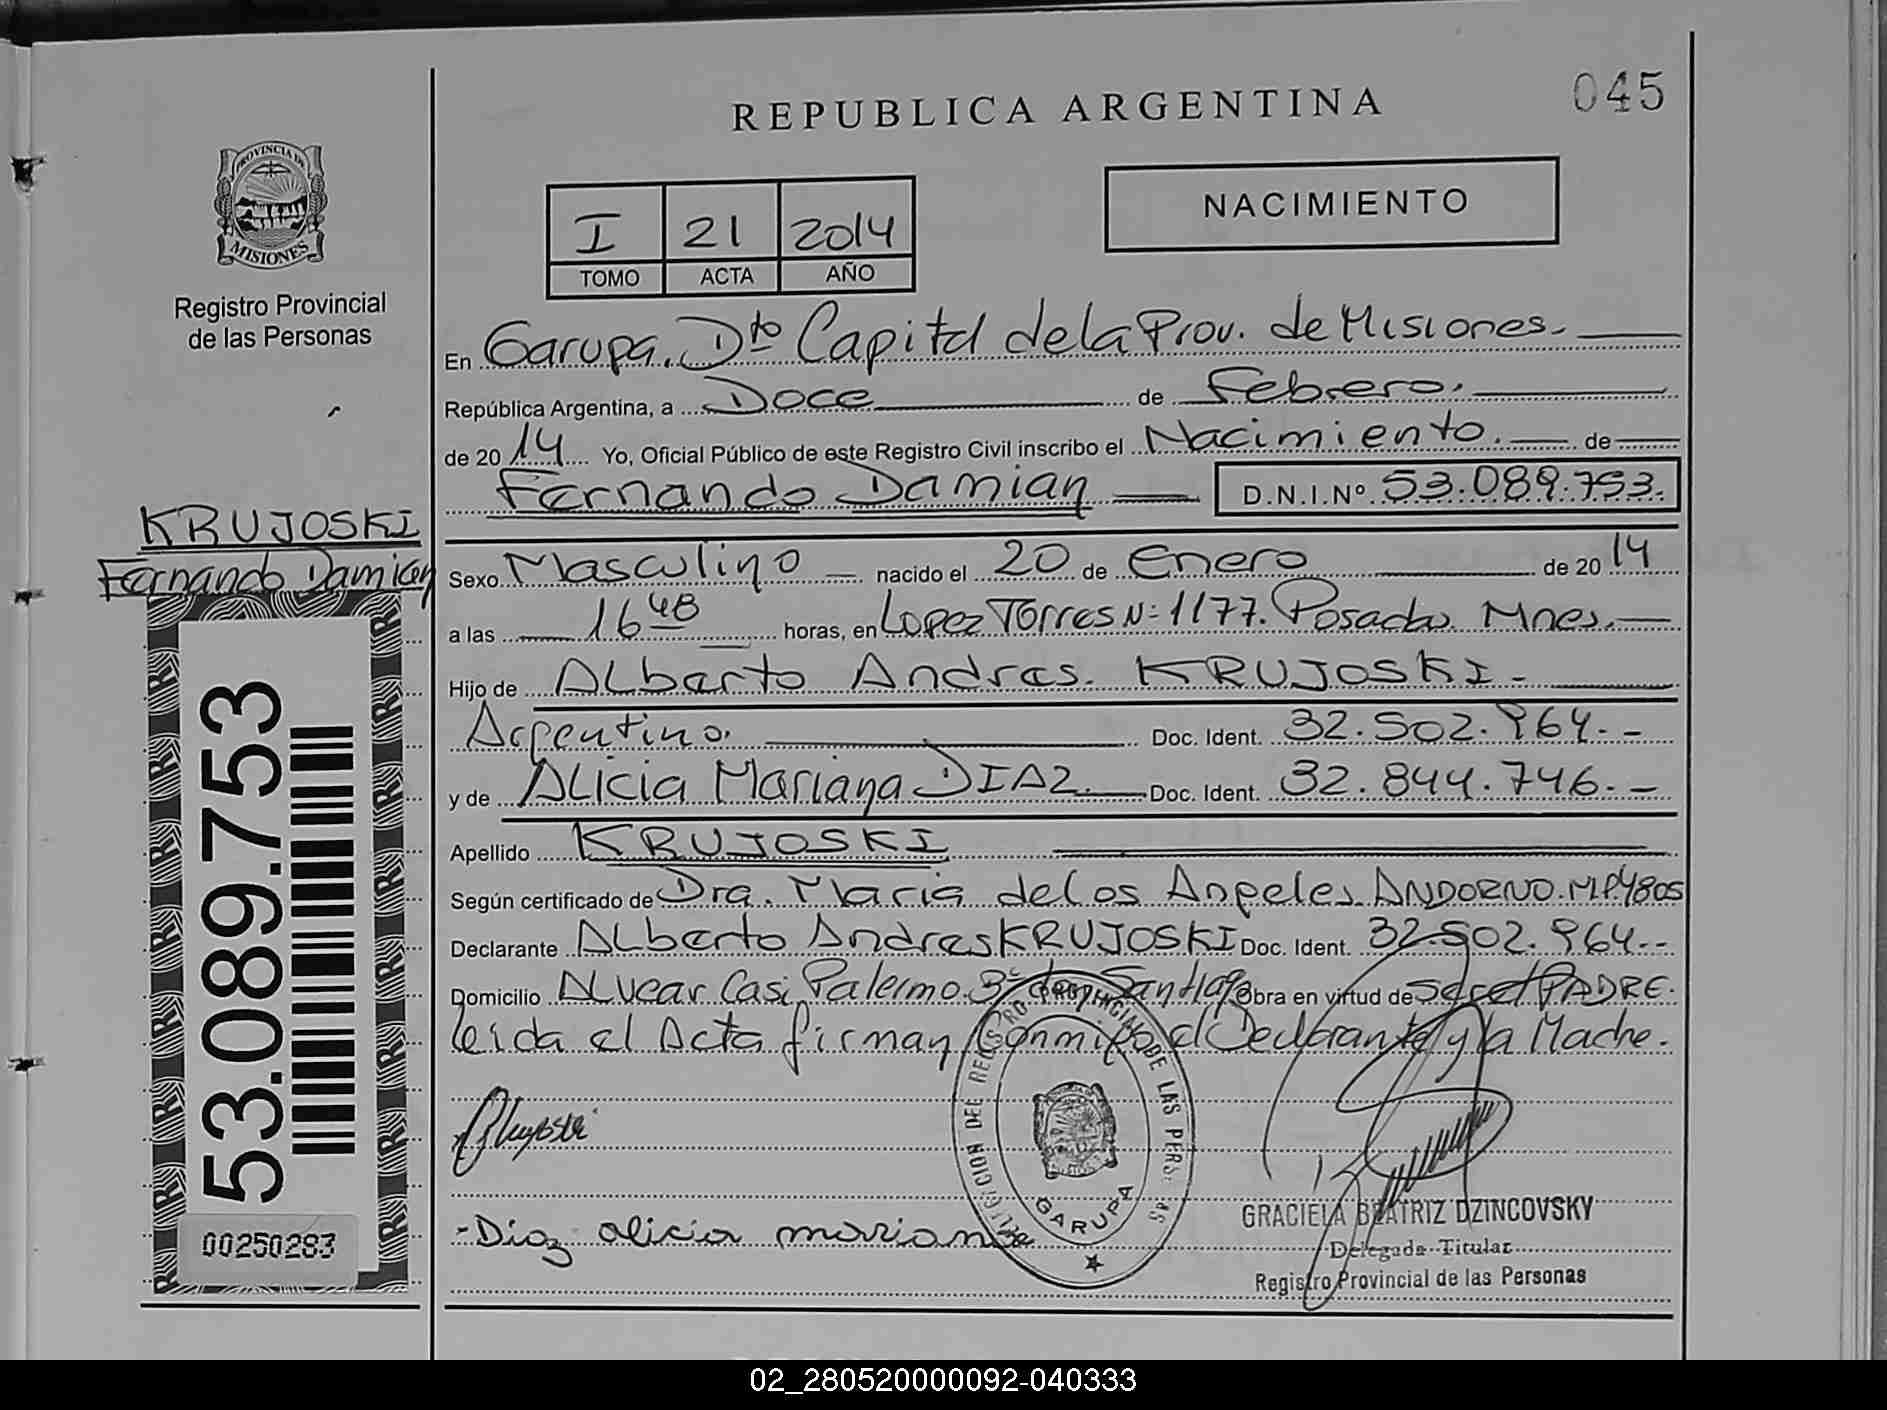 045
REPUBLICA ARGENTINA
PROVINCIA DE
MISIONES
Registro Provincial
de las Personas
I 21 2014
TOMO ACTA AÑO
NACIMIENTO
En Garupa. Dto Capital de la Prov. de Misiones.
República Argentina, a Doce de Febrero.
de 2014 Yo, Oficial Público de este Registro Civil inscribo el Nacimiento. de
Fernando Damian D.N.I.Nº 53.089.753.
KRUJOSKI
Fernando Damian
Sexo Masculino nacido el 20 de Enero de 2014
a las 16 48 horas, en Lopez Torres Nº 1177. Posadas Mnes.
Hijo de Alberto Andres KRUJOSKI.-
Argentino. Doc. Ident. 32.502.964.-
y de Alicia Mariana DIAZ. Doc. Ident. 32.844.746.-
Apellido KRUJOSKI
Según certificado de Dra. Maria de los Angeles ANDORNO. M.P.4805
Declarante Alberto Andres KRUJOSKI Doc. Ident. 32.502.964.-
Domicilio Alvear Casi Palermo. Bº Santiago Obra en virtud de ser el PADRE.
leida el Acta firman Conmigo el Declarante y la Madre.
53.089.753
00250283
DELEGACION DEL REGISTRO PROVINCIAL DE LAS PERSONAS
GARUPA
-Diaz alicia mariana
GRACIELA BEATRIZ DZINCOVSKY
Delegada Titular
Registro Provincial de las Personas
02_280520000092-040333